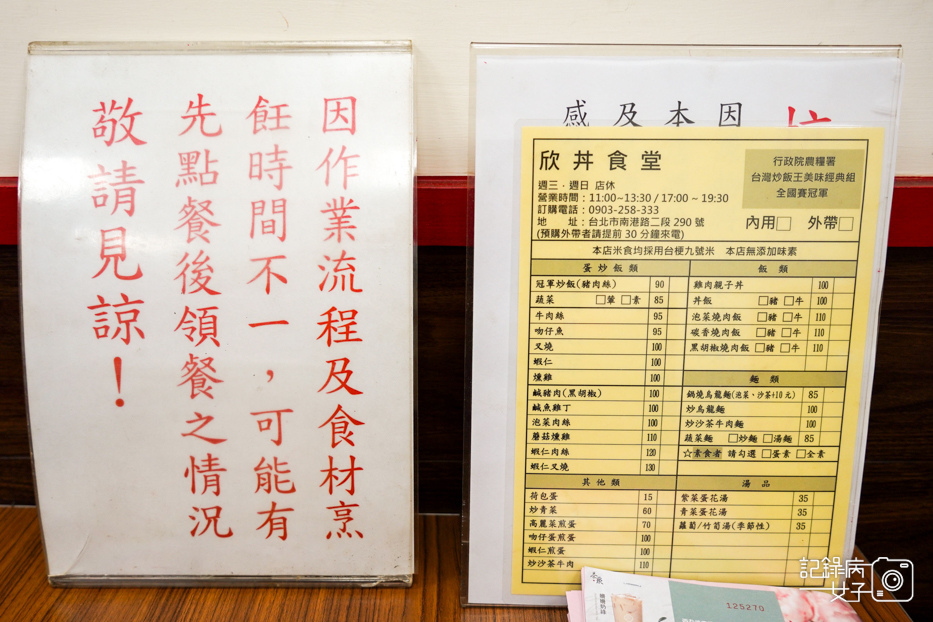 因作業流程及食材烹
飪時間不一，可能有
先點餐後領餐之情況
敬請見諒！
因
本
及
感
欣丼食堂
行政院農糧署
台灣炒飯王美味經典組
全國賽冠軍
週三．週日 店休
營業時間：11:00~13:30 / 17:00 ~ 19:30
訂購電話：0903-258-333
地 址：台北市南港路二段 290 號
(預購外帶者請提前 30 分鐘來電)
內用□ 外帶□
本店米食均採用台梗九號米 本店無添加味素
蛋炒飯類
冠軍炒飯(豬肉絲) 90
蔬菜 □葷 □素 85
牛肉絲 95
吻仔魚 95
叉燒 100
蝦仁 100
燻雞 100
鹹豬肉(黑胡椒) 100
鹹魚雞丁 100
泡菜肉絲 100
蘑菇燻雞 110
蝦仁肉絲 120
蝦仁叉燒 130
其他類
荷包蛋 15
炒青菜 60
高麗菜煎蛋 70
吻仔蛋煎蛋 100
蝦仁煎蛋 100
炒沙茶牛肉 110
飯類
雞肉親子丼 100
丼飯 □豬 □牛 100
泡菜燒肉飯 □豬 □牛 110
碳香燒肉飯 □豬 □牛 110
黑胡椒燒肉飯 □豬 □牛 110
麵類
鍋燒烏龍麵(泡菜、沙茶+10元) 85
炒烏龍麵 100
炒沙茶牛肉麵 100
蔬菜麵 □炒麵 □湯麵 85
☆素食者 請勾選 □蛋素 □全素
湯品
紫菜蛋花湯 35
青菜蛋花湯 35
蘿蔔/竹筍湯(季節性) 35
125270
記錄病
女子